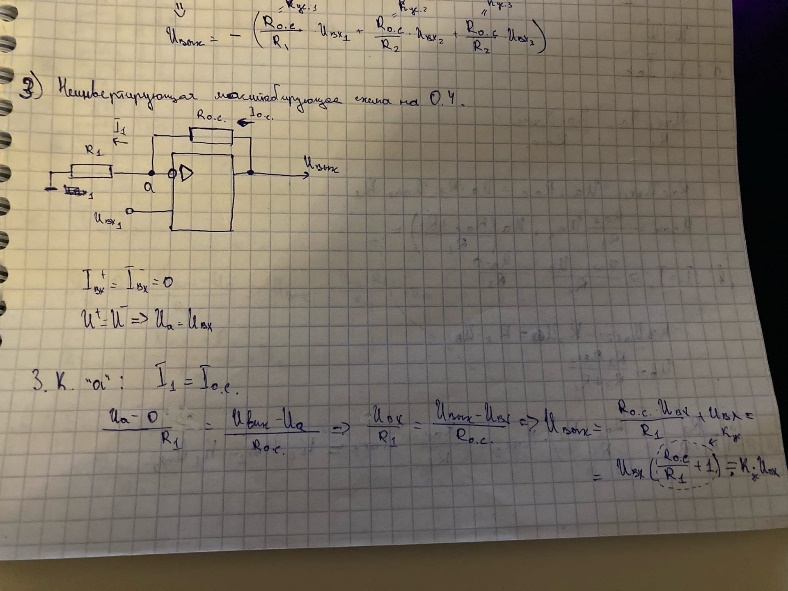 Kус.1 Kус.2 Kус.3
Uвых = - (Rо.с./R1 · Uвх1 + Rо.с./R2 · Uвх2 + Rо.с./R2 · Uвх3)
3) Неинвертирующая масштабирующая схема на О.У.
Rо.с. Iо.с.
I1
R1
Uвых
a
Uвх1
Iвх⁺ = Iвх⁻ = 0
U⁺ = U⁻ => Uа = Uвх
З.К. "а": I1 = Iо.с.
Uа - 0 / R1 = Uвых - Uа / Rо.с. => Uвх / R1 = Uвых - Uвх / Rо.с. => Uвых = Rо.с. Uвх / R1 + Uвх =
= Uвх (Rо.с / R1 + 1) = K · Uвх